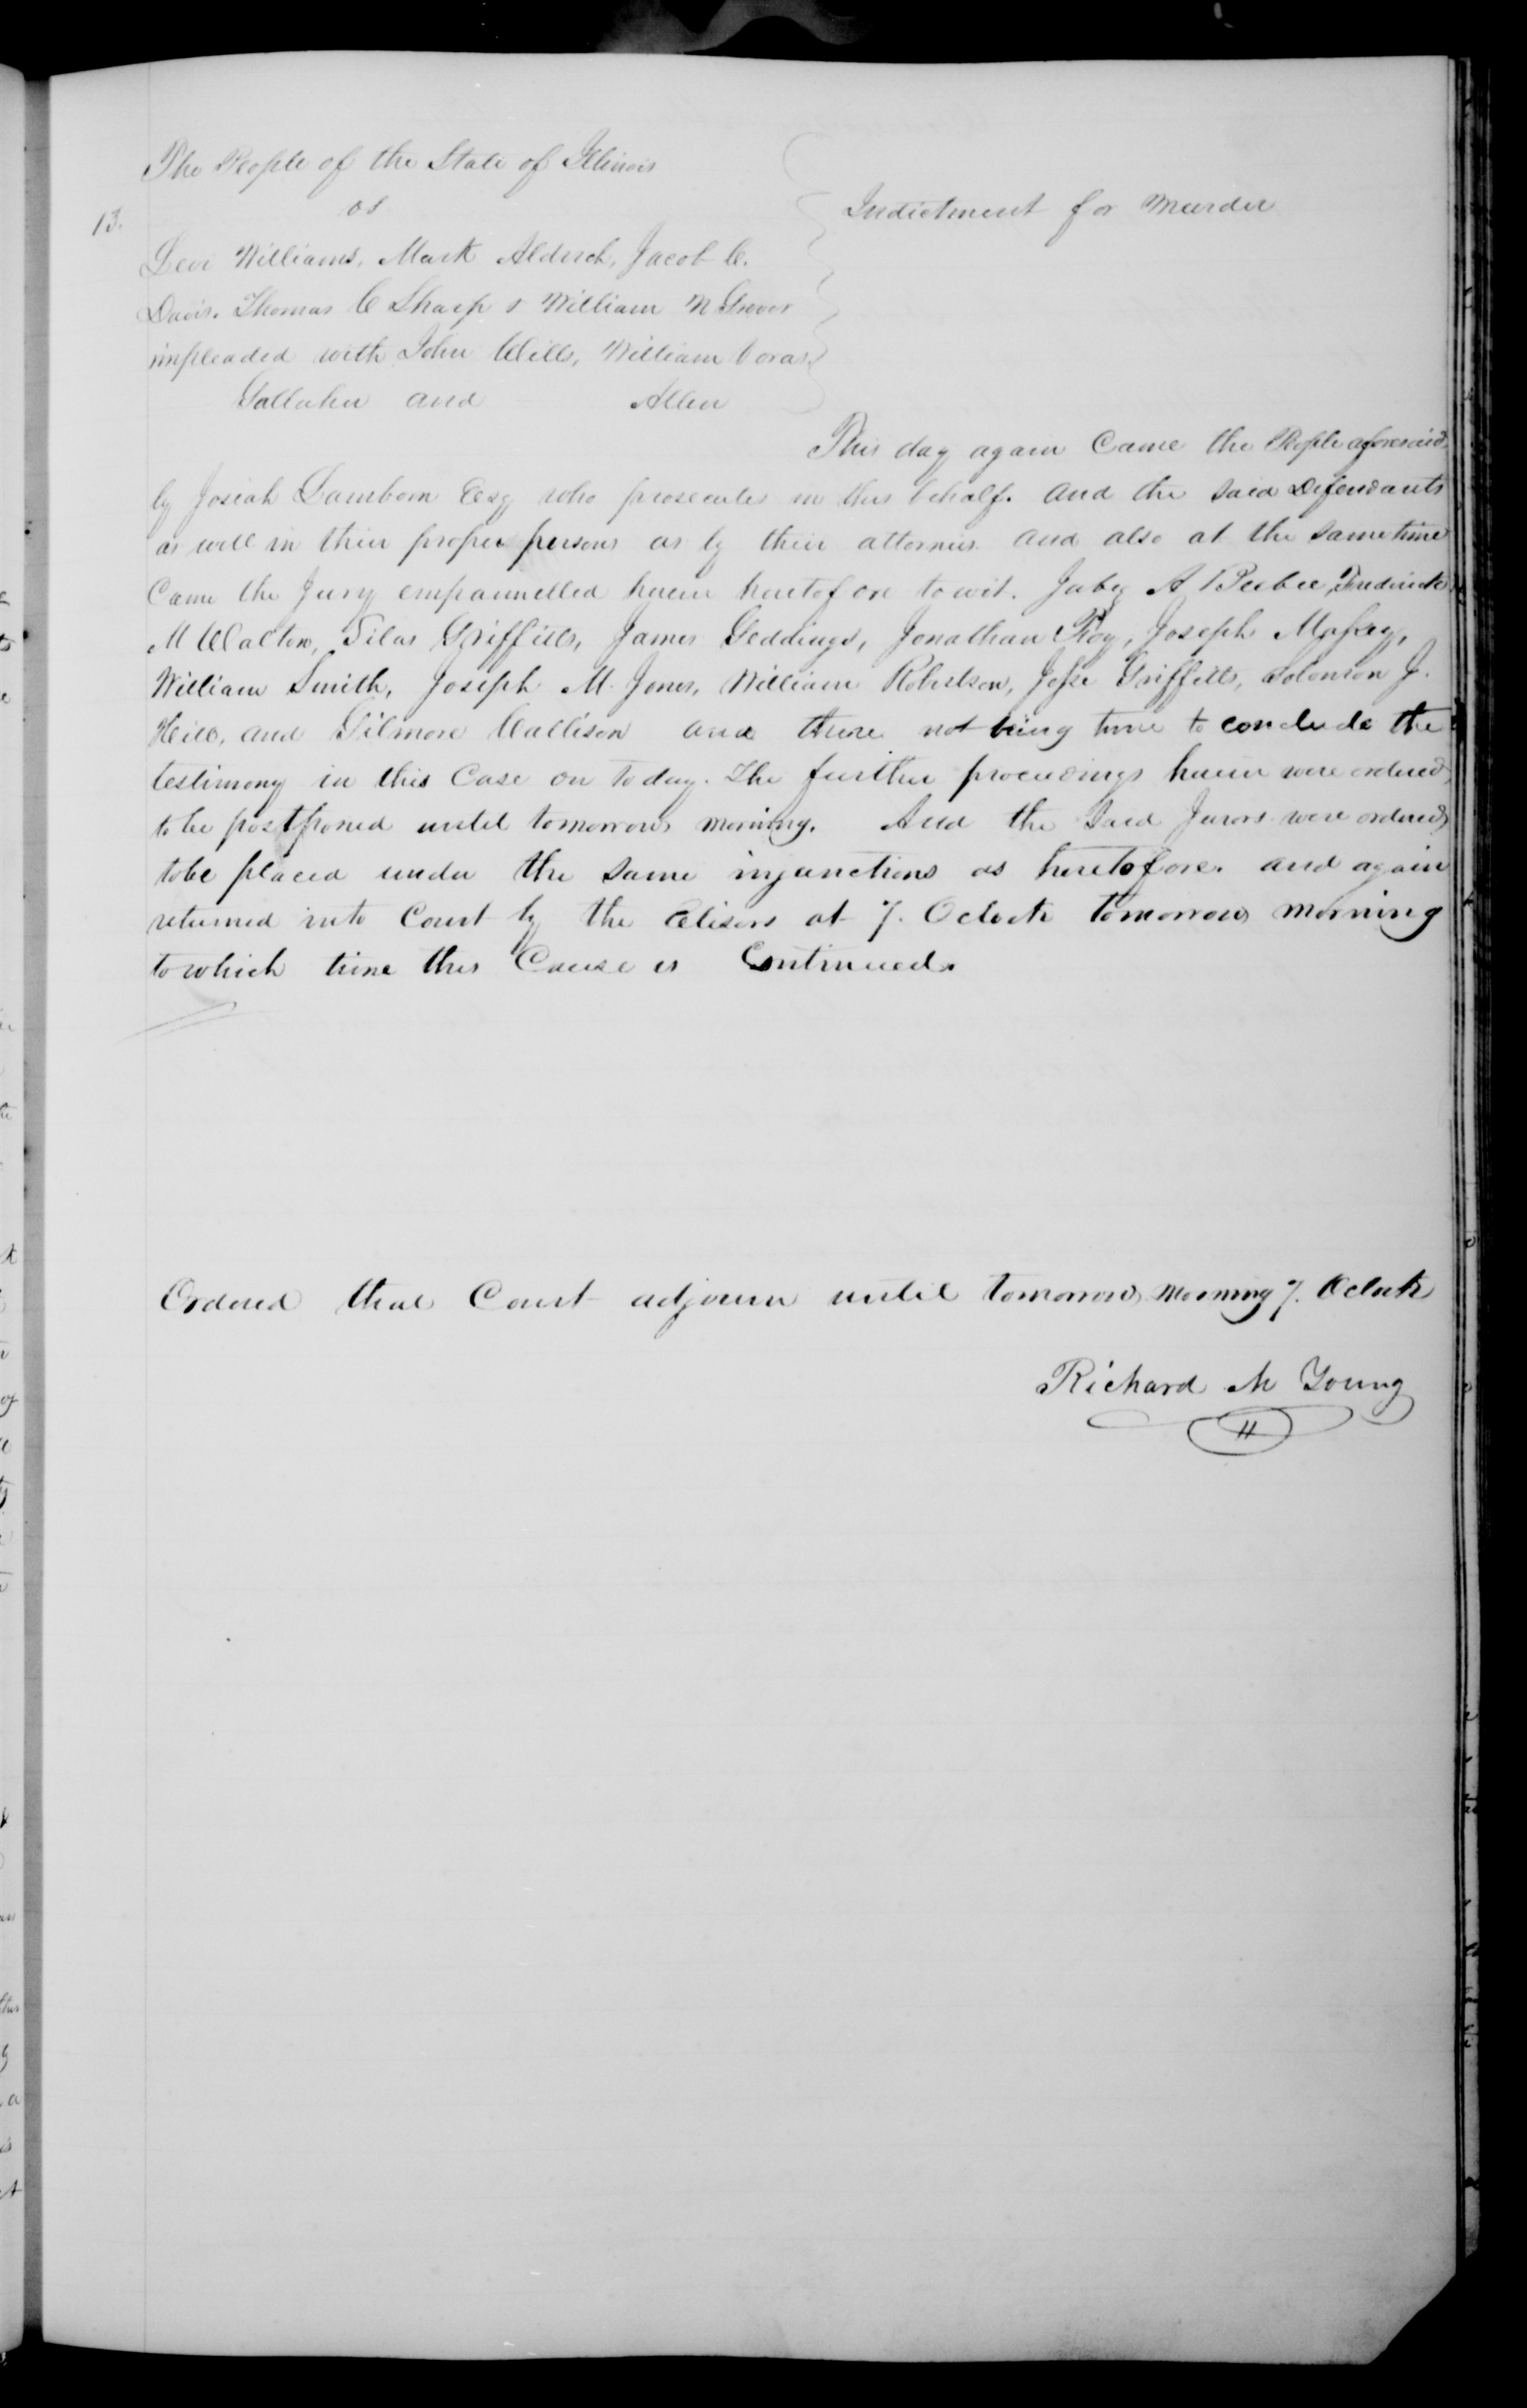 The People of the State of Illinois
13. vs Indictment for Murder
Levi Williams, Mark Aldrich, Jacob C.
Davis. Thomas C Sharp & William N Grover
impleaded with John Wills, William Voras
Gallaher and Allen
This day again Came the People aforesaid
by Josiah Lamborn Esq who prosecutes in this behalf. and the said Defendants
as well in their proper persons as by their attornies and also at the same time
Came the Jury empannelled herein heretofore to wit. Jabez A Beebee, Frederick
M Walton, Silas Griffitts, James Geddings, Jonathan Foy, Joseph Massey,
William Smith, Joseph M. Jones, William Robertson, Jesse Griffitts, Solomon J.
Hill, and Gilmore Callison and there not being time to conclude the
testimony in this Case on to day. The further proceedings herein were ordered
to be postponed until tomorrow morning. And the Said Jurors were ordered
to be placed under the same injunctions as heretofore. and again
returned into Court by the Elisors at 7. Oclock tomorrow morning
to which time this Cause is Continued.
Ordered that Court adjourn until tomorrow Morning 7. Oclock
Richard M Young